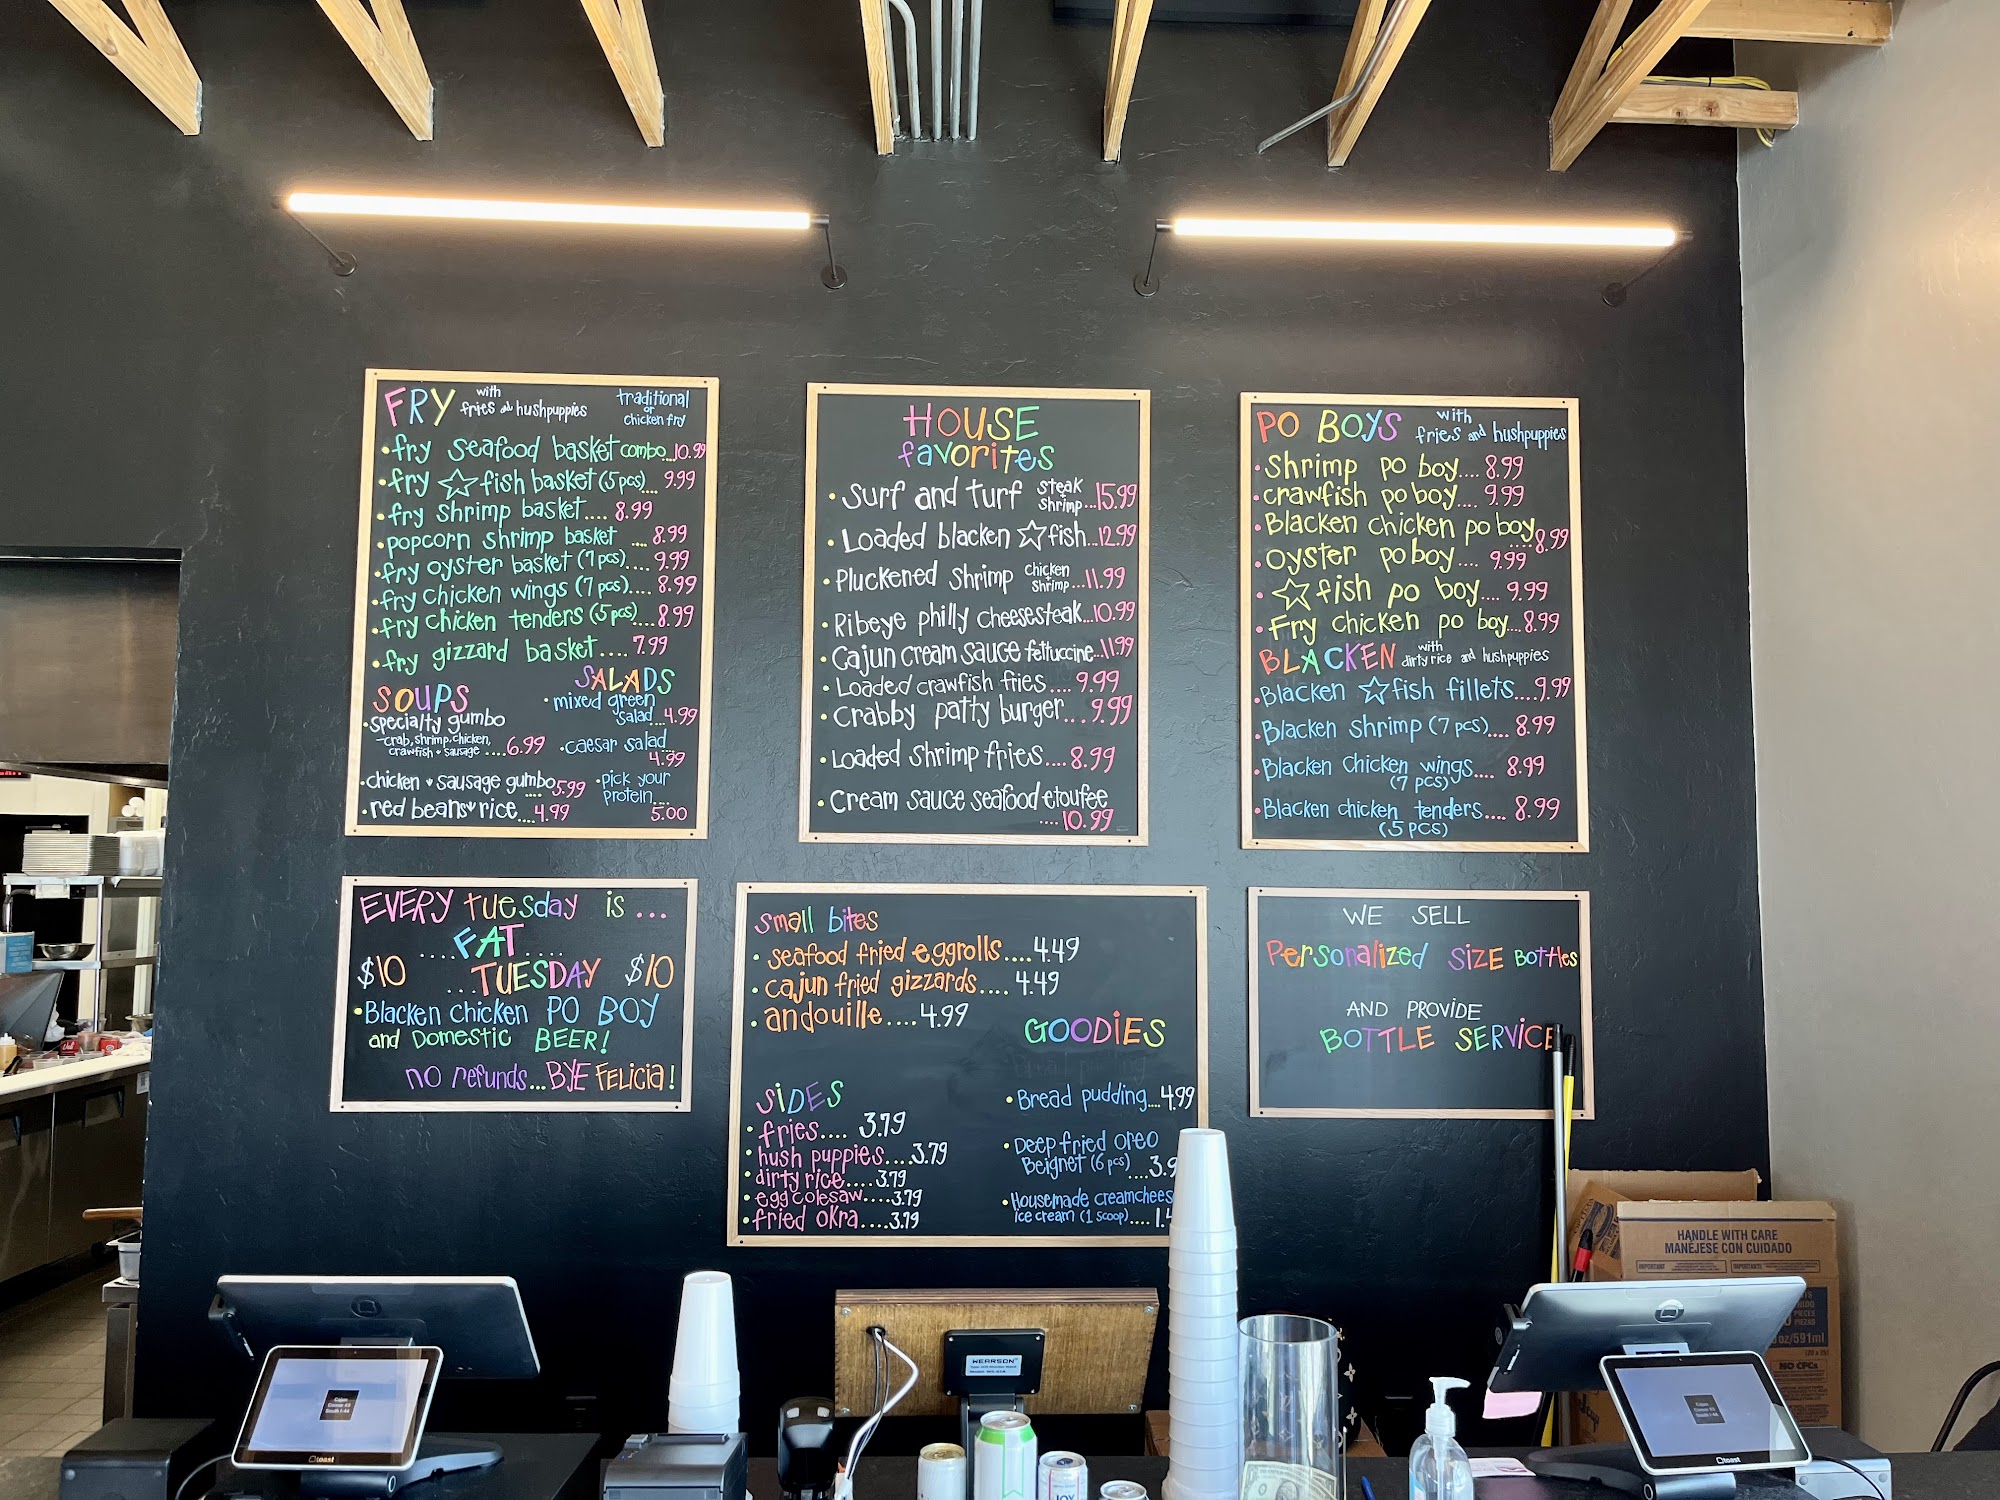 FRY with fries and hushpuppies traditional or chicken fry
•fry seafood basket combo...10.99
•fry ☆ fish basket (5pcs)... 9.99
•fry shrimp basket.... 8.99
•popcorn shrimp basket .... 8.99
•fry oyster basket (7pcs).... 9.99
•fry chicken wings (7pcs).... 8.99
•fry chicken tenders (5pcs)....8.99
•fry gizzard basket.... 7.99
SOUPS
•specialty gumbo
-crab, shrimp, chicken,
crawfish + sausage ....6.99
•chicken + sausage gumbo....5.99
•red beans + rice....4.99
SALADS
•mixed green
salad...4.99
•caesar salad...
4.99
•pick your
protein...
5.00
HOUSE
favorites
•Surf and turf steak + shrimp...15.99
•Loaded blacken ☆ fish...12.99
•Pluckened Shrimp chicken + shrimp...11.99
•Ribeye philly cheesesteak...10.99
•Cajun cream sauce fettuccine...11.99
•Loaded crawfish fries.... 9.99
•Crabby patty burger... 9.99
•Loaded shrimp fries....8.99
•Cream sauce seafood etoufee
....10.99
PO BOYS with fries and hushpuppies
•Shrimp po boy.... 8.99
•crawfish po boy.... 9.99
•Blacken chicken po boy
....8.99
•Oyster po boy.... 9.99
•☆ fish po boy.... 9.99
•Fry chicken po boy....8.99
BLACKEN with dirty rice and hushpuppies
•Blacken ☆ fish fillets....9.99
•Blacken shrimp (7pcs).... 8.99
•Blacken chicken wings.... 8.99
(7 pcs)
•Blacken chicken tenders.... 8.99
(5 PCS)
EVERY Tuesday is ...
....FAT....
$10 ...TUESDAY $10
•Blacken chicken PO BOY
and Domestic BEER!
no refunds...BYE FELICIA!
Small bites
•seafood fried eggrolls....4.49
•cajun fried gizzards.... 4.49
•andouille....4.99
SIDES
•fries.... 3.79
•hush puppies....3.79
•dirty rice....3.79
•egg colesaw....3.79
•fried okra....3.79
GOODIES
•Bread pudding....4.99
•Deep fried oreo
Beignet (6pcs)....3.9
•Housemade creamchees
ice cream (1 scoop)....1.
WE SELL
Personalized SIZE Bottles
AND PROVIDE
BOTTLE SERVICE
HANDLE WITH CARE
MANÉJESE CON CUIDADO
IMPORTANT IMPORTANTE
oz/591ml
NO CFCs
WEARSON
toast
toast
JOY